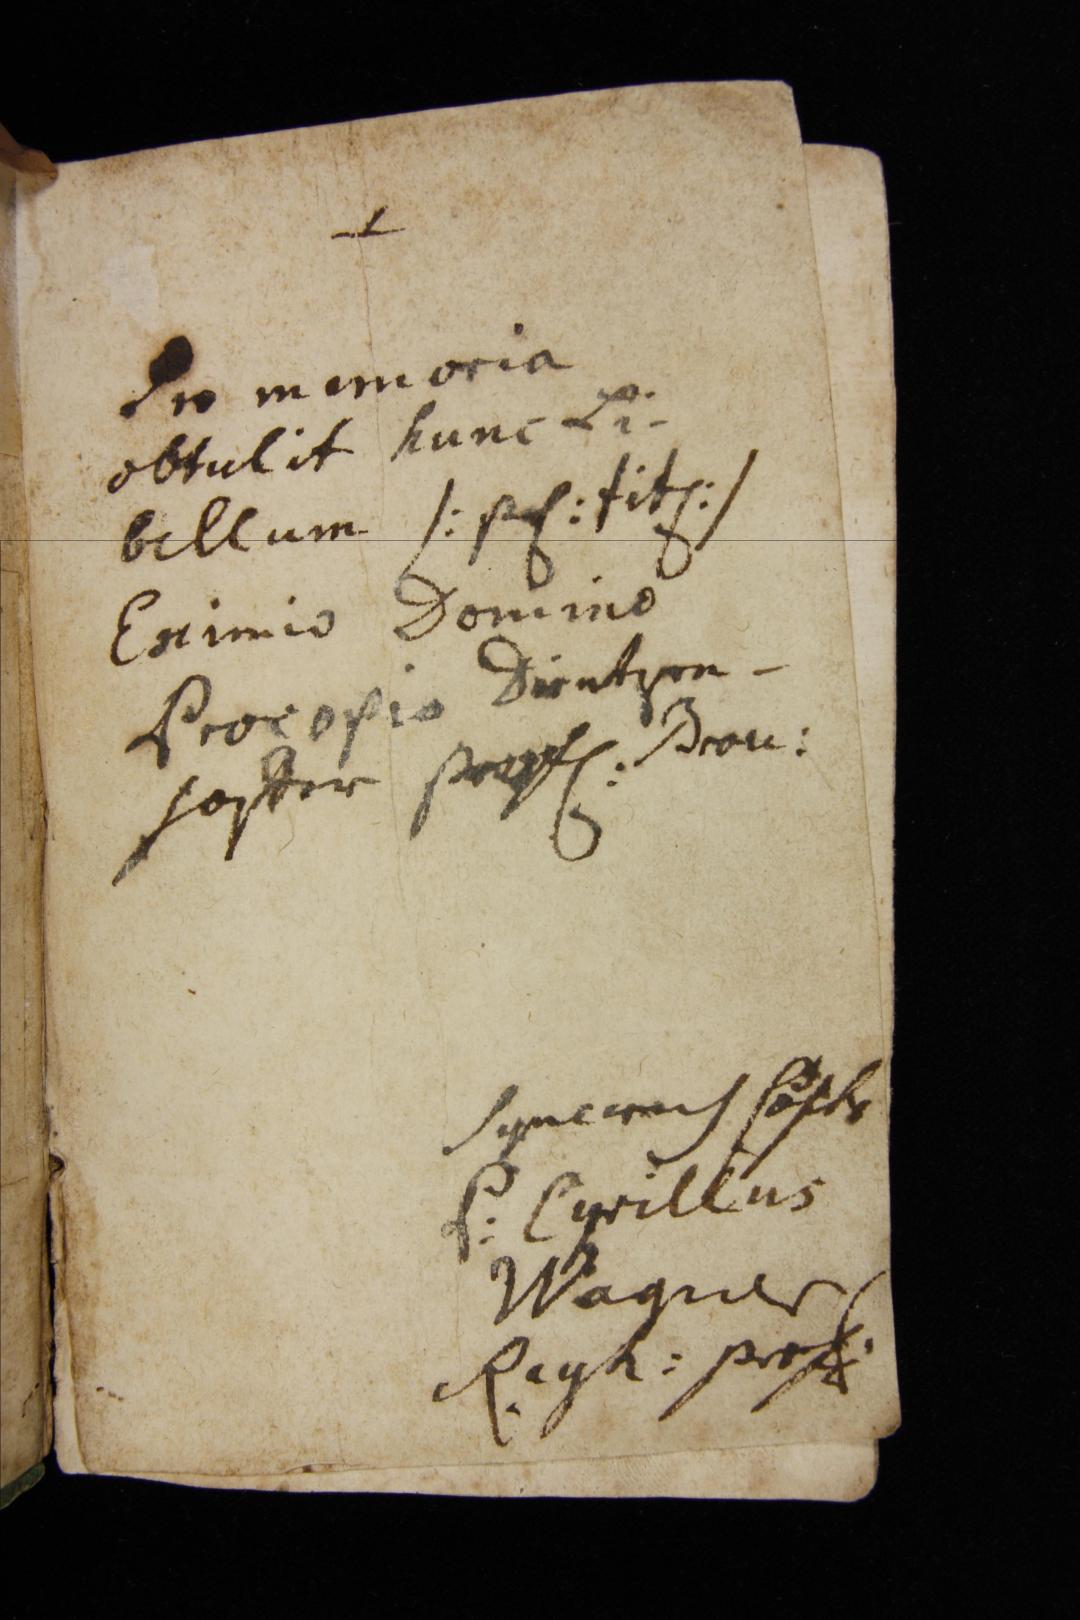 Pro memoria
obtulit hunc Li-
bellum /: pl: tit: /
Eximio Domino
Procopio Dientzen-
hoffer proff: Brau:
P: Cyrillus
Wagner
Reyh: proff: